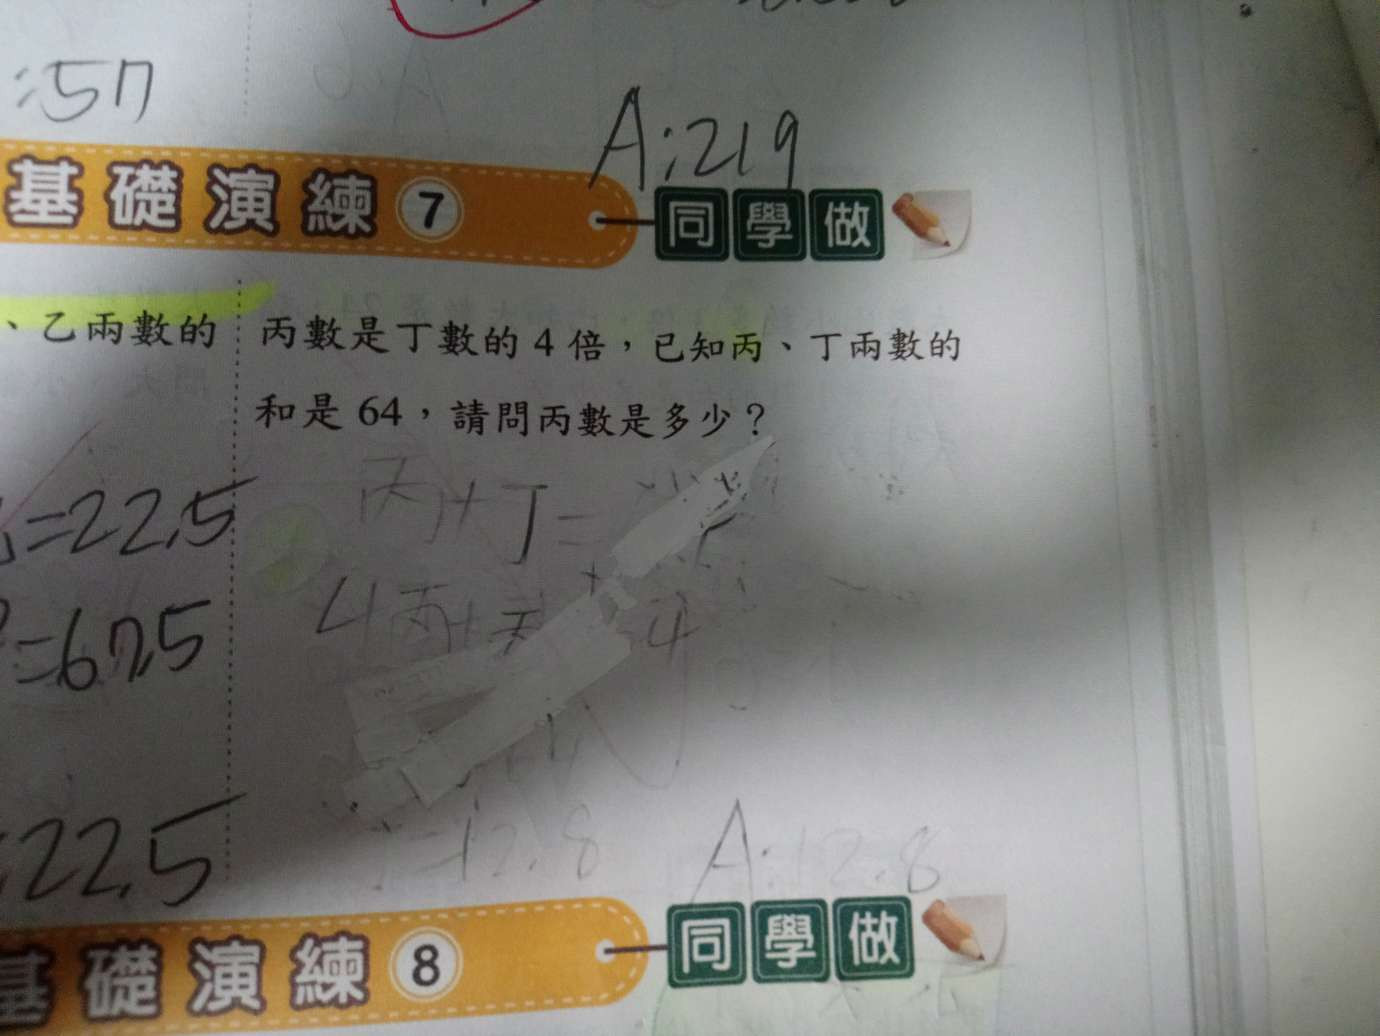 :57
A:219
基礎演練 7 同學做
、乙兩數的
丙數是丁數的 4 倍，已知丙、丁兩數的
和是 64，請問丙數是多少？
丙+丁=
=22.5
4丙+
4
=67.5
=12.8
A:12.8
22.5
基礎演練 8 同學做